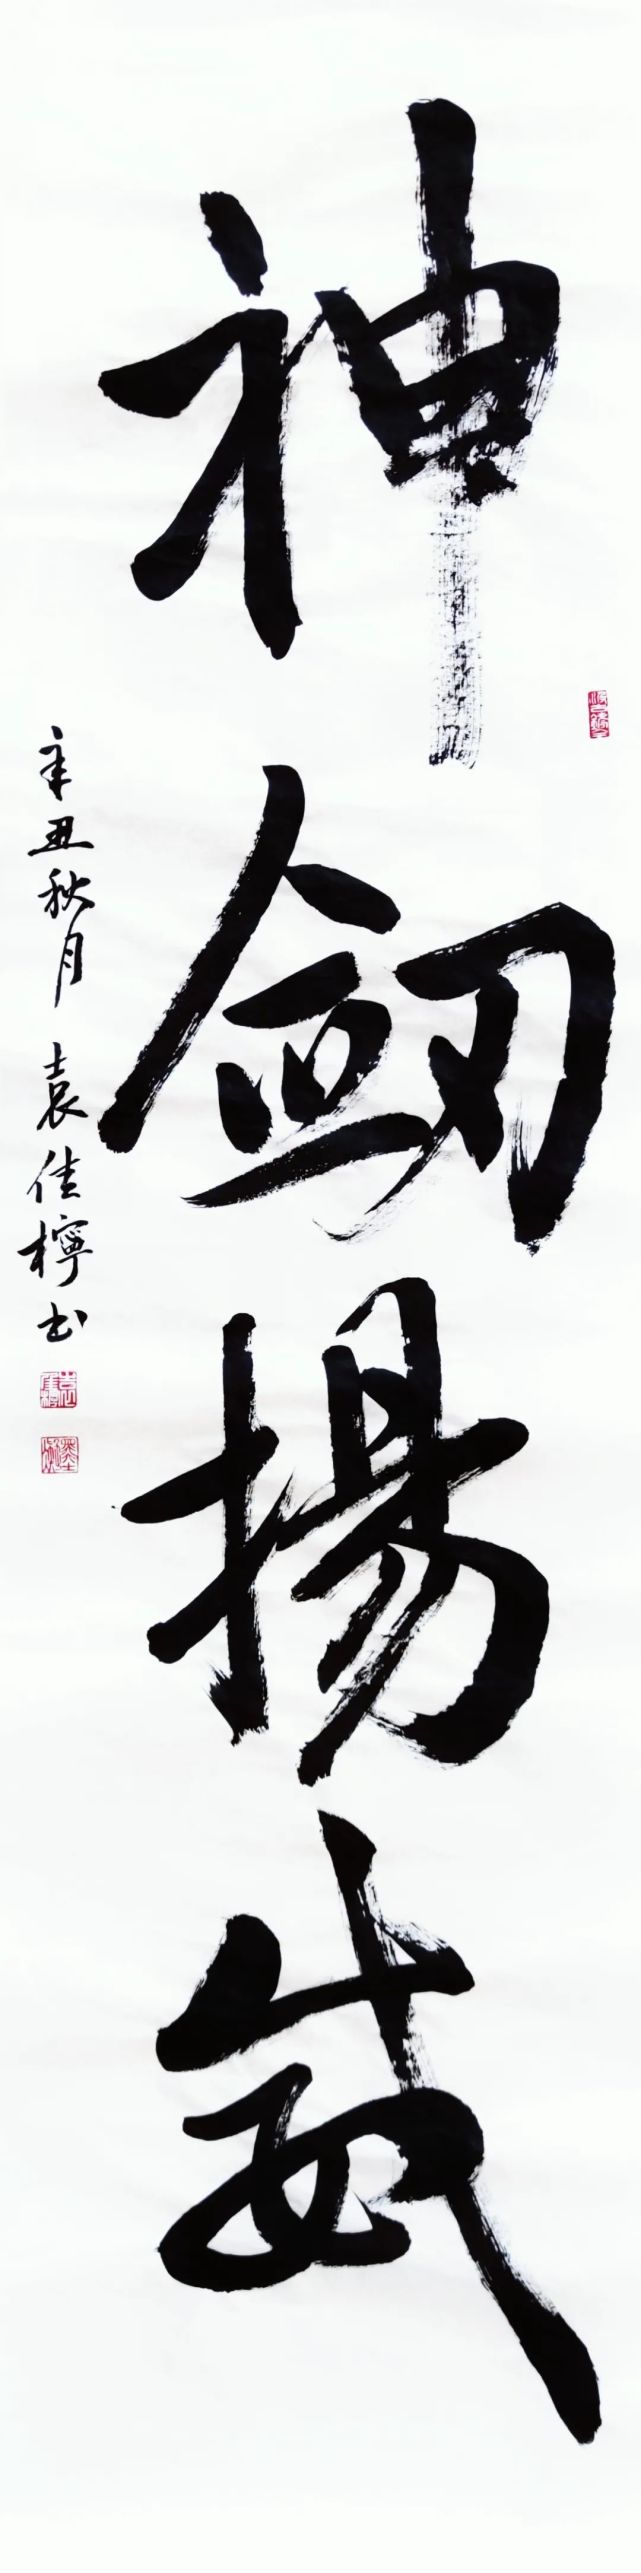 神劔揚威
辛丑秋月 袁佳檸书